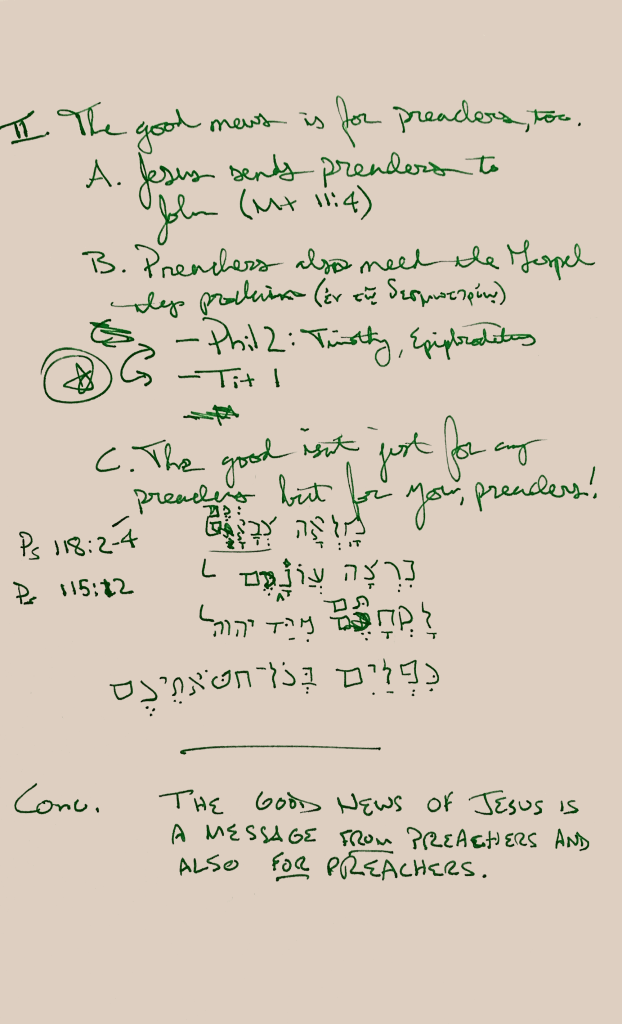 II. The good news is for preachers, too.
A. Jesus sends preachers to
John (Mt 11:4)
B. Preachers also need the Gospel
they proclaim (ἐν τῷ δεσμωτηρίῳ)
– Phil 2: Timothy, Epiphroditus
– Tit 1
C. The good isn't just for any
preachers but for you, preachers!
Ps 118:2-4
מָלְאָה צְבָאֲכֶם
Ps 115:12
נִרְצָה עֲוֹנְכֶם
לְקַחְתֶּם מִיַּד יהוה
כִּפְלַיִם בְּכָל־חַטֹּאתֵיכֶם
Conc. THE GOOD NEWS OF JESUS IS
A MESSAGE FROM PREACHERS AND
ALSO FOR PREACHERS.